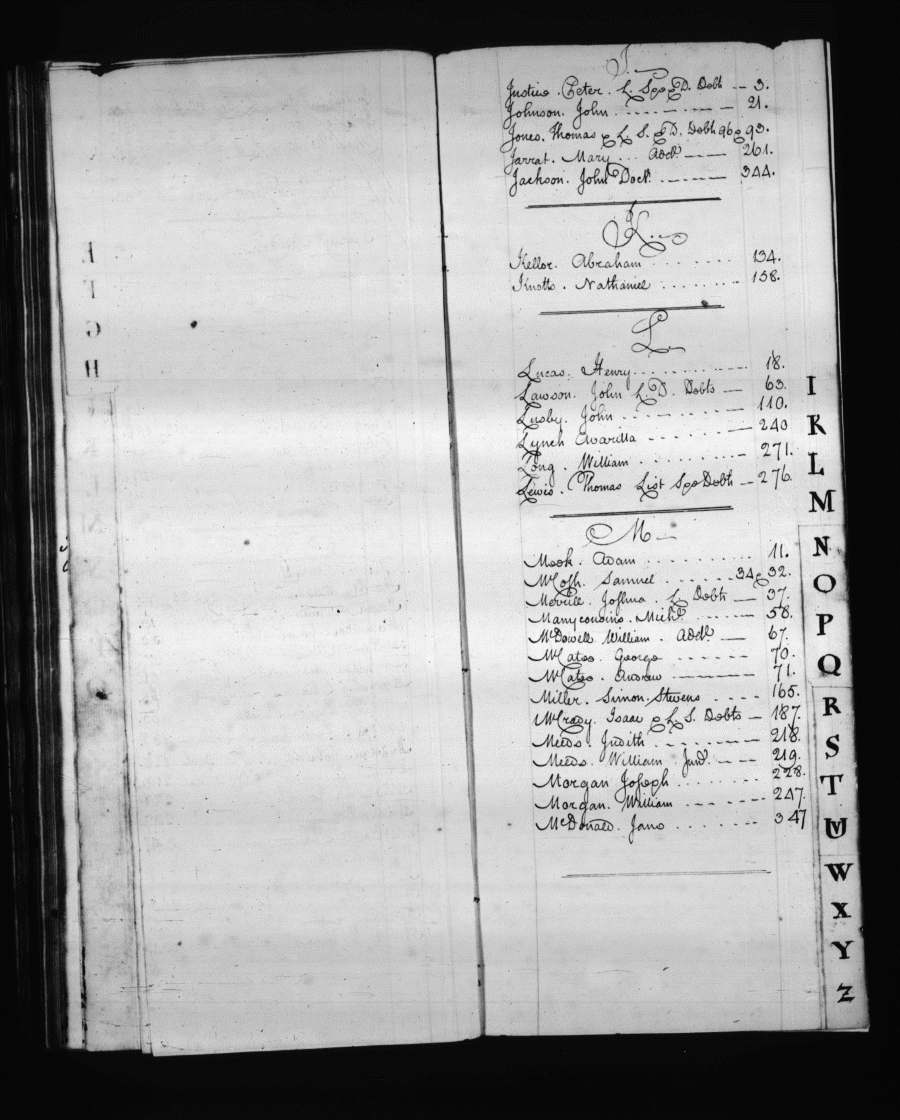 J.
Justice. Peter. L. Sps & D. Debt — 3.
Johnson. John ............ 21.
Jones. Thomas & L. S. & D. Debts 96 & 93.
Jarrat. Mary ... Addl. — — — 261.
Jackson. John Dock. ........ 344.
K.
Keller. Abraham ........ 134.
Knotts. Nathaniel ........ 158.
L
Lucas. Henry ............ 18.
Lawson. John L. D. Debts — 63.
Lusby. John ............ 110.
Lynch Avarilla ........ 240
Long. William ........ 271.
Lewis. Thomas List Sps Debts — 276
M
Meek. Adam ............ 11.
Samuel ....... 34 & 32.
Merrill. Joshua. L Debts — 37.
Manycousins. Michl. ...... 58.
McDowell William. Addl. — 67.
McCates. George ....... 70.
McCates. Andrew ———— 71.
Miller. Simon. Stevens .... 165.
McCrady. Isaac & L. S. Debts — 187.
Meeds. Judith ........ 218.
Meeds. William Junr. ... 219.
Morgan Joseph ........ 228.
Morgan. William ....... 247.
McDonald. Jane ........ 347
E
F
G
H
I
K
L
M
N
O
P
Q
R
S
T
UV
W
X
Y
Z